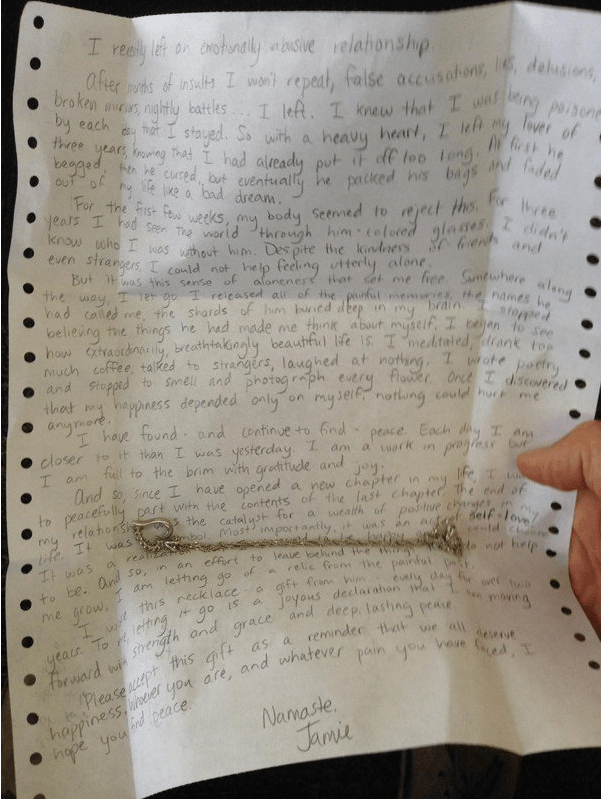 I recently left an emotionally abusive relationship.
After months of insults I won't repeat, false accusations, lies, delusions,
broken mirrors, nightly battles... I left. I knew that I was being poisoned
by each day that I stayed. So with a heavy heart, I left my lover of
three years, knowing that I had already put it off too long. At first he
begged, then he cursed, but eventually he packed his bags and faded
out of my life like a bad dream.
For the first few weeks, my body seemed to reject this. For three
years I had seen the world through him-colored glasses. I didn't
know who I was without him. Despite the kindness of friends and
even strangers, I could not help feeling utterly alone.
But it was this sense of aloneness that set me free. Somewhere along
the way, I let go. I released all of the painful memories, the names he
had called me, the shards of him buried deep in my brain. I stopped
believing the things he had made me think about myself. I began to see
how extraordinarily, breathtakingly beautiful life is. I meditated, drank too
much coffee, talked to strangers, laughed at nothing. I wrote poetry
and stopped to smell and photograph every flower. Once I discovered
that my happiness depended only on myself, nothing could hurt me
anymore.
I have found - and continue to find - peace. Each day I am
closer to it than I was yesterday. I am a work in progress but
I am full to the brim with gratitude and joy.
And so, since I have opened a new chapter in my life, I want
to peacefully part with the contents of the last chapter. The end of
my relationship was the catalyst for a wealth of positive changes in my
life. It was most importantly, it was an act of self-love.
It was a realization could choose
to be. And so, in an effort to leave behind the things do not help
me grow, I am letting go of a relic from the painful past.
I wore this necklace - a gift from him - every day for over two
years. To me, letting it go is a joyous declaration that I am moving
forward with strength and grace and deep, lasting peace.
Please accept this gift as a reminder that we all deserve
happiness. Whoever you are, and whatever pain you have faced, I
hope you find peace.
Namaste.
Jamie